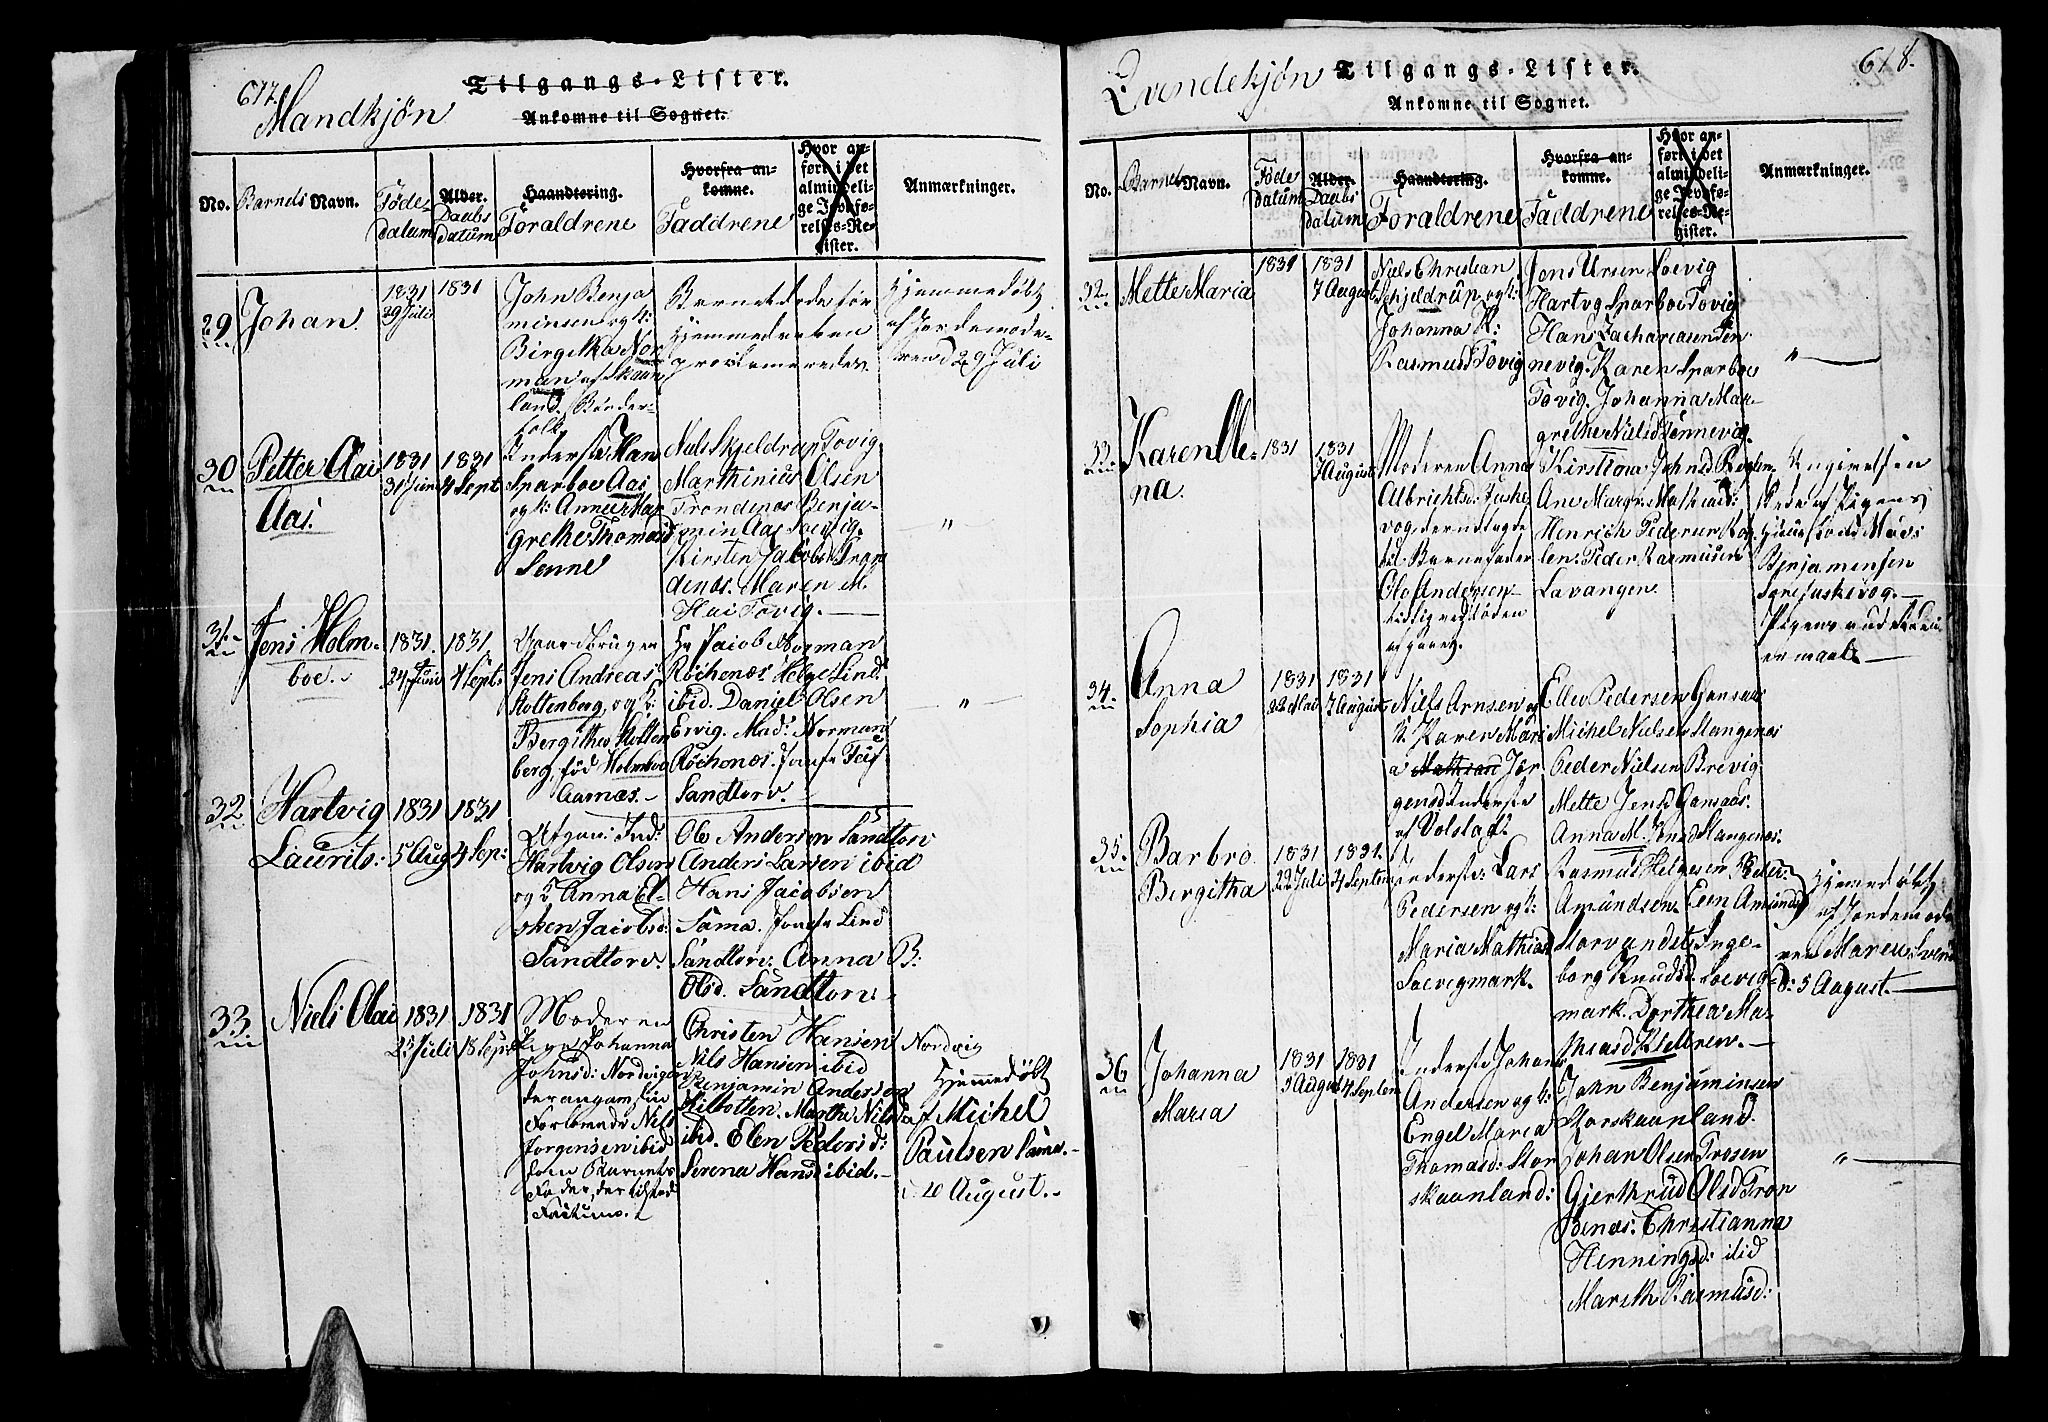 617.
Mandkjön
Tilgangs-Lister.
Ankomne til Sognet.
No.
Barnets Navn.
Föde-
datum
Alder.
Daabs
datum
Haandtering.
Foraldrene
Hvorfra an-
komne.
Faddrene
Hvor an-
ført i det
almindeli-
ge Jevnfø-
relses-Re-
gister.
Anmærkninger.
29
Johan
1831
29 Juli
1831
John Benja
minsen og h:
Birgitka Nor
man af Skaan
land. Bönder-
folk
Barnet döde för
Hjemmedaaben
proclameredes.
Hjemmedöbt
af Jordemode-
ren d 29 Juli
30
Petter Olai
Aas.
1831
31 Juni
1831
4 Sept
Inderste Han
Sparboe Aas
og h: Anne Mar
grethe Thomasd
Senne
Nils Skjeldrup Tovig.
Marthinus Olsen
Trondenæs Benja-
min Aas Soevig.
Kirsten Jacobsd Tron
denæs. Maren M.
Hai Tovig.
"
31
Jens Holm-
boe.
1831
24 Juni
1831
4 Sept.
Gaardbruger
Jens Andreas
Stoltenberg, og h:
Bergithe Stolten
berg, föd Holmboe
Aarnæs.
Hr Jacob Norman
Röchenæs. Helge Lind
ibid. Daniel Olsen
Ervig. Mad: Norman
Röchenæs. Jomfr
Sandtorv.
"
32
Hartvig
Laurits:
1831
5 Aug
1831
4 Sep:
Hartvig Olsen
og h Anna El-
sken Jacobsd:
Sandtorv.
Ole Andersen Sandtorv
Anders Larsen ibid
Hans Jacobsen
Sama. Jomfr Lind
Sandtorv: Anna B:
Olsd. Sandtorv.
33.
Niels Olai
1831
25 Juli
1831
18 Sept
Moderen
Pige Johanna
Johnsd: Nordvigen
der angav sin
Forlovede Nils
Jörgensen ibid
som Barnets
Fader, der tilstod
Factum.
Christen Hansen Nordvig
Nils Hansen ibid
Benjamin Anderson
Kilbotten. Marthe Nilsd
ibid. Elen Pedersd:
Serena Hansd ibid.
Hjemmedöbt
af Michel
Paulsen Sama.
10 August.
618.
Qvindekjön
Tilgangs-Lister.
Ankomne til Sognet.
No.
Barnets Navn.
Föde
datum
Alder.
Daabs
datum
Haandtering.
Foraldrene
Hvorfra an-
komne.
Faddrene
Hvor an-
ført i det
almindeli-
ge Jevnfø-
relses-Re-
gister.
Anmærkninger.
32
Mette Maria
1831
1831
7 August
Niels Christian
Schjeldrup og h:
Johanna K:
Rasmusd Tovig
Jens Ursen Loevig
Hartvg Sparboe Tovig
Hans Zachariasen Ten
nevig. Karen Sparboe
Tovig. Johanna Mar-
grethe Nielsd Tennevig.
"
33
Karen Ele-
na.
1831
1831
7 August
Moderen Anna
Albrichtsd: Fuske
vog der udlagde
til Barnefader
Ole Andersen
tidligere Löden
afgaaet.
Kirstina Johnsd Roglen.
Ane Margr: Mathiasd:
Henrich Pedersen Rog
len. Peder Rasmusen
Lavangen
Angivelsen
skede af Pigens
Huusbond Mads
Benjamensen
Fuskevog.
Pigens
en maal
34.
Anna
Sophia
1831
22 Mai
1831
7 August
Niels Arnsen og
h Karen Mari
a Mathiasd Jör
gensd Inderste
af Volstad
Elles Pedersen Gansaas
Michel Nielsen Stangenæs
Peder Nielsen Brevig
Mette Jensd Gansaas.
Anna M. Jensd Stangenæs.
35.
Barbro
Bergitha
1831
22 Juli
1831.
4 Septem
Inderste: Lars
Pedersen og h:
Maria Mathiasd
Soevigmark.
Rasmus Helgesen Peder
Amundsen. Elen Amundsd
Storvandet Inge-
borg Knudsd. Soevig-
mark. Dorthea Ma-
thiasd Kielbren.
Hjemmedöbt
af Jordemode
ren Maren Svend
d: 5 August.
36
Johanna
Maria
1831
5 August
1831
4 Septem
Inderste Johan
Andersen og h:
Engel Maria
Thomasd: Stor
skaanland:
John Benjaminsen
Storskaanland.
Johan Olsen Trosen
Gjerthrud Olsd Tron
denæs: Christianna
Henningsd: ibid
Mareth Rasmusd:
"